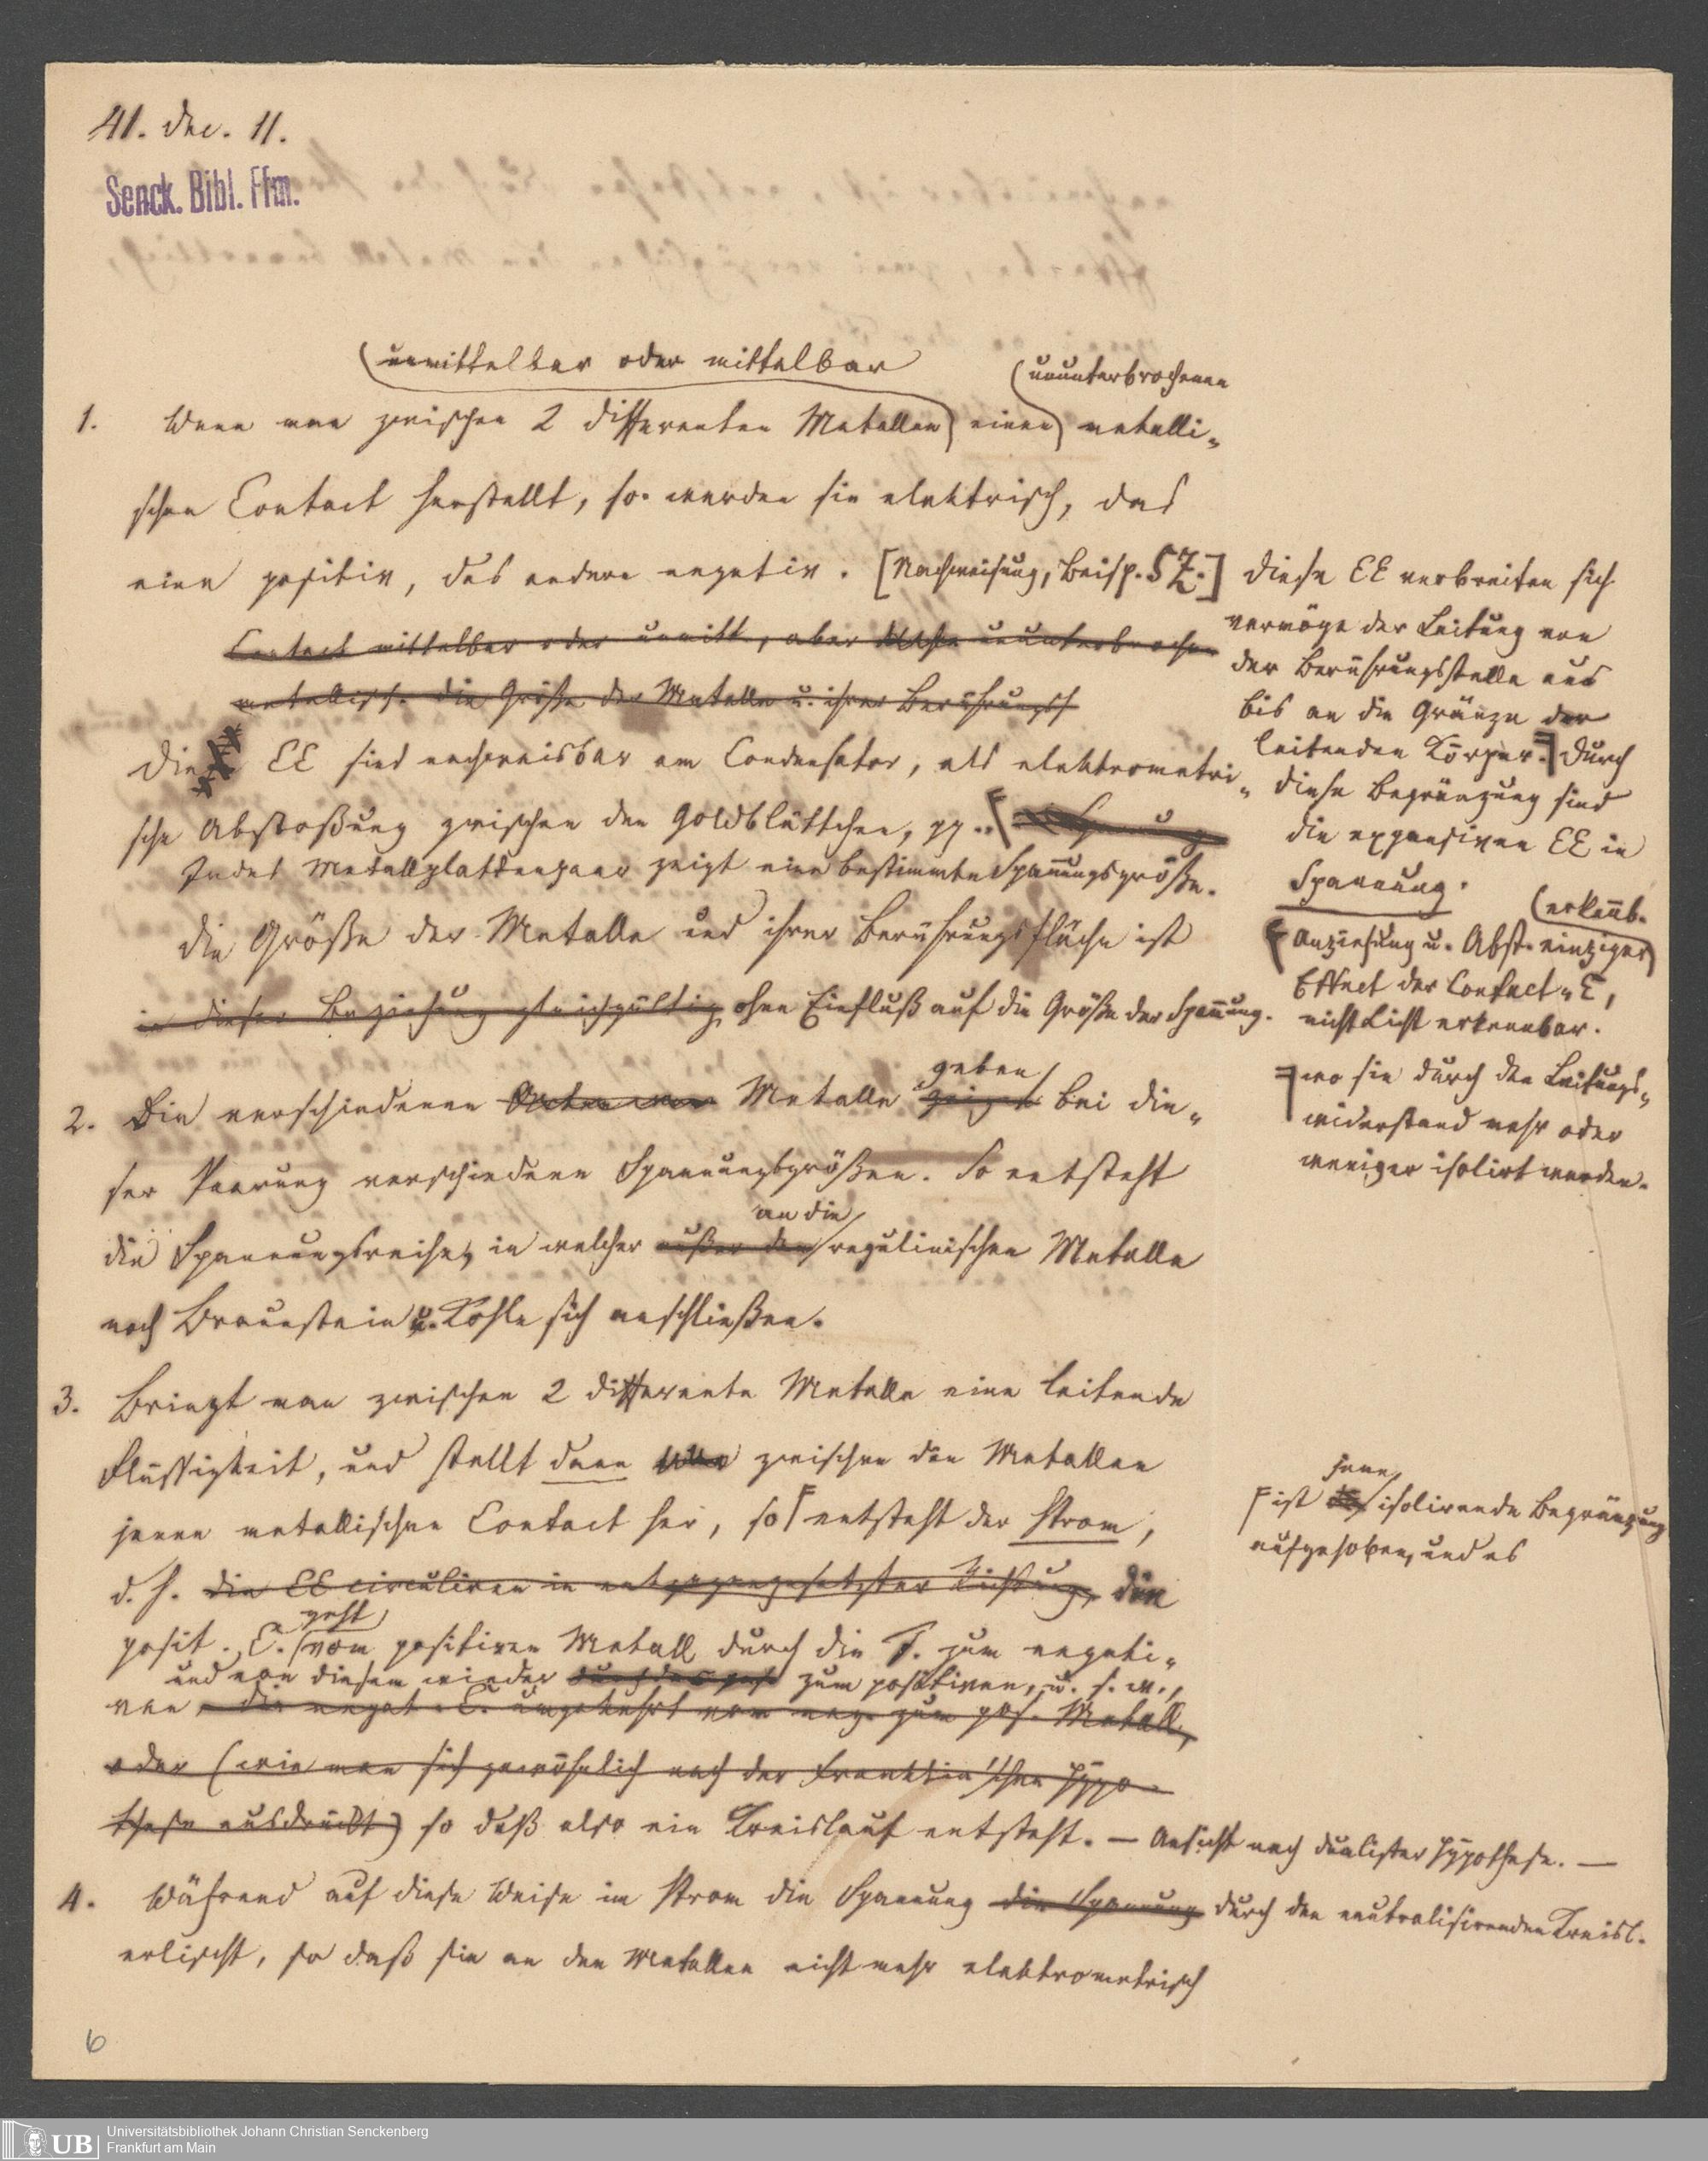 41. Dec. 11.
Senck. Bibl. Ffm.
unmittelbar oder mittelbar
ununterbrochenen
1. Wenn man zwischen 2 differenten Metallen einen metalli-
schen Contact herstellt, so werden sie elektrisch, das
eine positiv, das andere negativ. [Nachweisung, Beisp. S 7.]
Contact mittelbar oder unmitt, aber ununterbrochen
metallisch. die Größe der Metalle u. ihrer Berührungsf
Diese EE sind nachweisbar am Condensator, als elektrometri-
sche Abstoßung zwischen den Goldblättchen, pp..
Jedes Metallplattenpaar zeigt eine bestimmte Spannungsgröße.
die Größe der Metalle und ihrer Berührungsfläche ist
in dieser Beziehung gleichgültig ohne Einfluß auf die Größe der Spannung.
geben
2. Die verschiedenen Metalle zeigen bei die-
ser Paarung verschiedene Spannungsgrößen. So entsteht
an die
die Spannungsreihe, in welcher außer den regulinischen Metalle
noch Braunstein u. Kohle sich anschließen.
3. Bringt man zwischen 2 differente Metalle eine leitende
Flüssigkeit, und stellt dann zwischen den Metallen
jenen metallischen Contact her, so entsteht der Strom,
d. h. die EE circuliren in entgegengesetzter Richtung, die
geht
posit. E. vom positiven Metall durch die F. zum negati-
und von diesem wieder durch das zum positiven, u. s. w.,
ven, die negat. E. umgekehrt vom neg. zum pos. Metall,
oder (wie man sich gewöhnlich nach der Franklin'schen Hypo-
these ausdrückt) so daß also ein Kreislauf entsteht. — Ansicht nach dualister Hypothese. —
4. Während auf diese Weise im Strom die Spannung die Spannung durch den neutralisirenden Kreisl.
erlischt, so daß sie an den Metallen nicht mehr elektrometrisch
6
Diese EE verbreiten sich
vermöge der Leitung von
der Berührungsstelle aus
bis an die Gränze der
leitenden Körper. Durch
diese Begränzung sind
die expansiven EE in
Spannung.
erkennb.
Anziehung u. Abst. einziger
Effect der Contact-E,
nicht Licht erkennbar.
wo sie durch den Leitungs-
widerstand mehr oder
weniger isolirt werden.
jene
ist die isolirende Begränzung
aufgehoben, und es
UB
Universitätsbibliothek Johann Christian Senckenberg
Frankfurt am Main